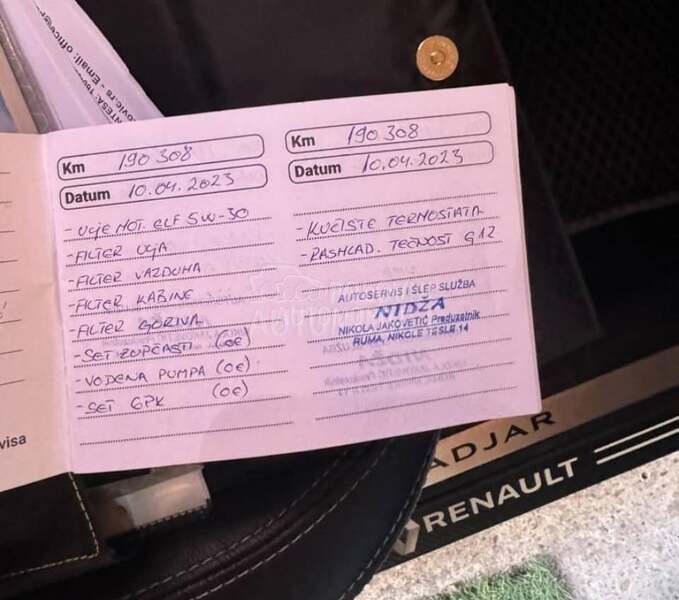 Km 190 308
Datum 10.04.2023
- ULJE MOT. ELF 5W-30
- FILTER ULJA
- FILTER VAZDUHA
- FILTER KABINE
- FILTER GORIVA
- SET ZUPČASTI (OE)
- VODENA PUMPA (OE)
- SET GPK (OE)
Km 190 308
Datum 10.04.2023
- KUĆIŠTE TERMOSTATA
- RASHLAD. TEČNOST G12
AUTOSERVIS I ŠLEP SLUŽBA
NIDŽA
NIKOLA JAKOVETIĆ Preduzetnik
RUMA, NIKOLE TESLE 14
visa
ADJAR
RENAULT